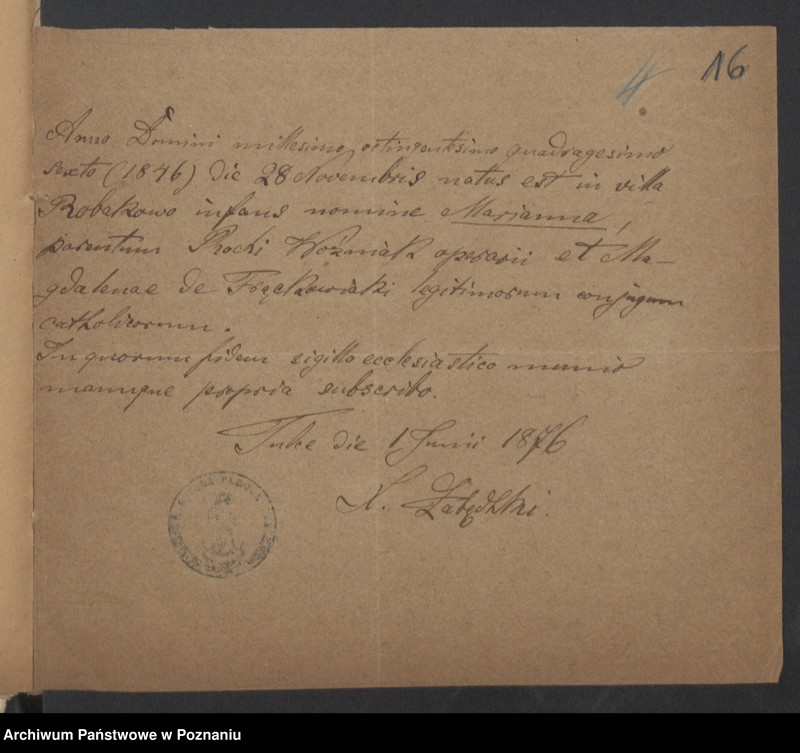 4 16
Anno Domini millesimo octingentesimo quadragesimo
sexto (1846) die 28 Novembris natus est in villa
Robakowo infans nomine Marianna,
parentum Rochi Woźniak operarii et Ma-
gdalenae de Frąckowiaki legitimorum conjugum
catholicorum.
In quorum fidem sigillo ecclesiastico munio
manuque propria subscribo.
Tulce die 1 Junii 1876
X. Łabędzki.
Archiwum Państwowe w Poznaniu